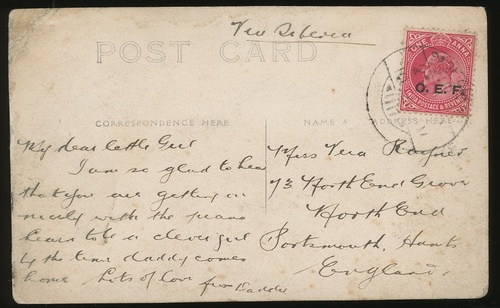 Via Siberia
POST CARD
ONE ANNA
C. E. F.
INDIA POSTAGE & REVENUE
CORRESPONDENCE HERE
NAME & ADDRESS HERE
My dear little Girl
I am so glad to hear
that you are getting on
nicely with the piano
learn to be a clever girl
by the time daddy comes
home Lots of love from Daddy
Miss Vera Rayner
73 North End Grove
North End
Portsmouth, Hants
England